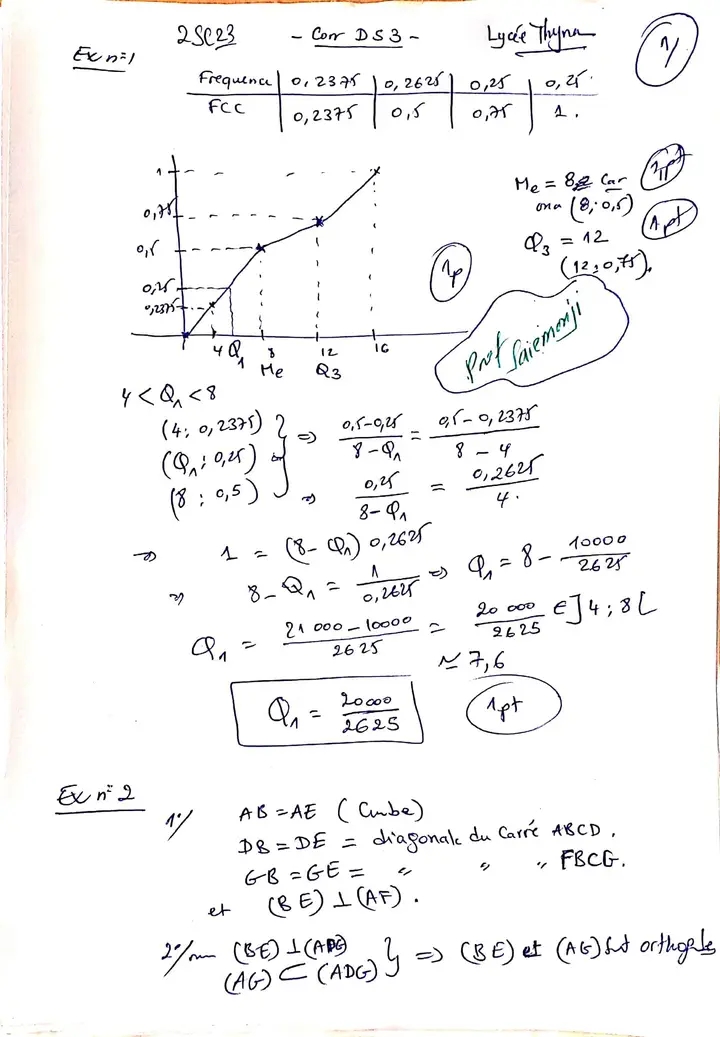 2SC23 - Corr DS3 - Lycée Thyna
1/
Ex n=1
Frequence 0,2375 0,2625 0,25 0,25
FCC 0,2375 0,5 0,75 1.
1
0,75
0,5
0,25
0,2375
4 Q₁ 8 12 16
Me Q3
Me = 8 Car 1pt
ona (8; 0,5)
Q₃ = 12 1pt
(12; 0,75).
1p
Prof Saiemonji
4 < Q₁ < 8
(4; 0,2375)
(Q₁; 0,25)
(8; 0,5)
} => (0,5-0,25)/(8-Q₁) = (0,5-0,2375)/(8-4)
=> 0,25/(8-Q₁) = 0,2625/4.
=> 1 = (8-Q₁) 0,2625
=> 8-Q₁ = 1/0,2625 => Q₁ = 8 - 10000/2625
Q₁ = (21 000-10000)/2625 = 20 000/2625 ∈ ]4; 8[
≃ 7,6
Q₁ = 20000/2625 1pt
Ex n=2
1°/ AB = AE (Cube)
DB = DE = diagonale du Carré ABCD.
GB = GE = " " " FBCG.
et (BE) ⊥ (AF).
2°/ (BE) ⊥ (ADG)
(AG) ⊂ (ADG) } => (BE) et (AG) sont orthogonales